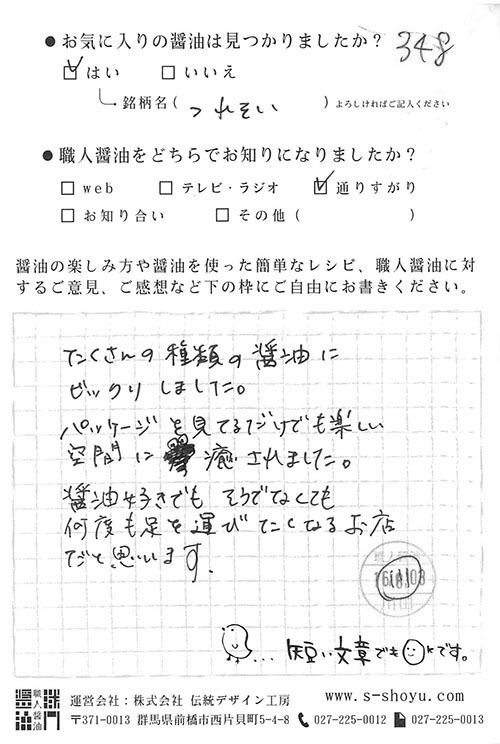 ● お気に入りの醤油は見つかりましたか？ 348
☑ はい □ いいえ
銘柄名（ つれそい ）よろしければご記入ください
● 職人醤油をどちらでお知りになりましたか？
□ web □ テレビ・ラジオ ☑ 通りすがり
□ お知り合い □ その他（ ）
醤油の楽しみ方や醤油を使った簡単なレシピ、職人醤油に対
するご意見、ご感想など下の枠にご自由にお書きください。
たくさんの種類の醤油に
ビックリしました。
パッケージを見てるだけでも楽しい
空間に癒されました。
醤油好きでもそうでなくても
何度も足を運びたくなるお店
だと思います。
短い文章でもOKです。
職人醤油
運営会社：株式会社 伝統デザイン工房 www.s-shoyu.com
〒371-0013 群馬県前橋市西片貝町5-4-8 027-225-0012 027-225-0013